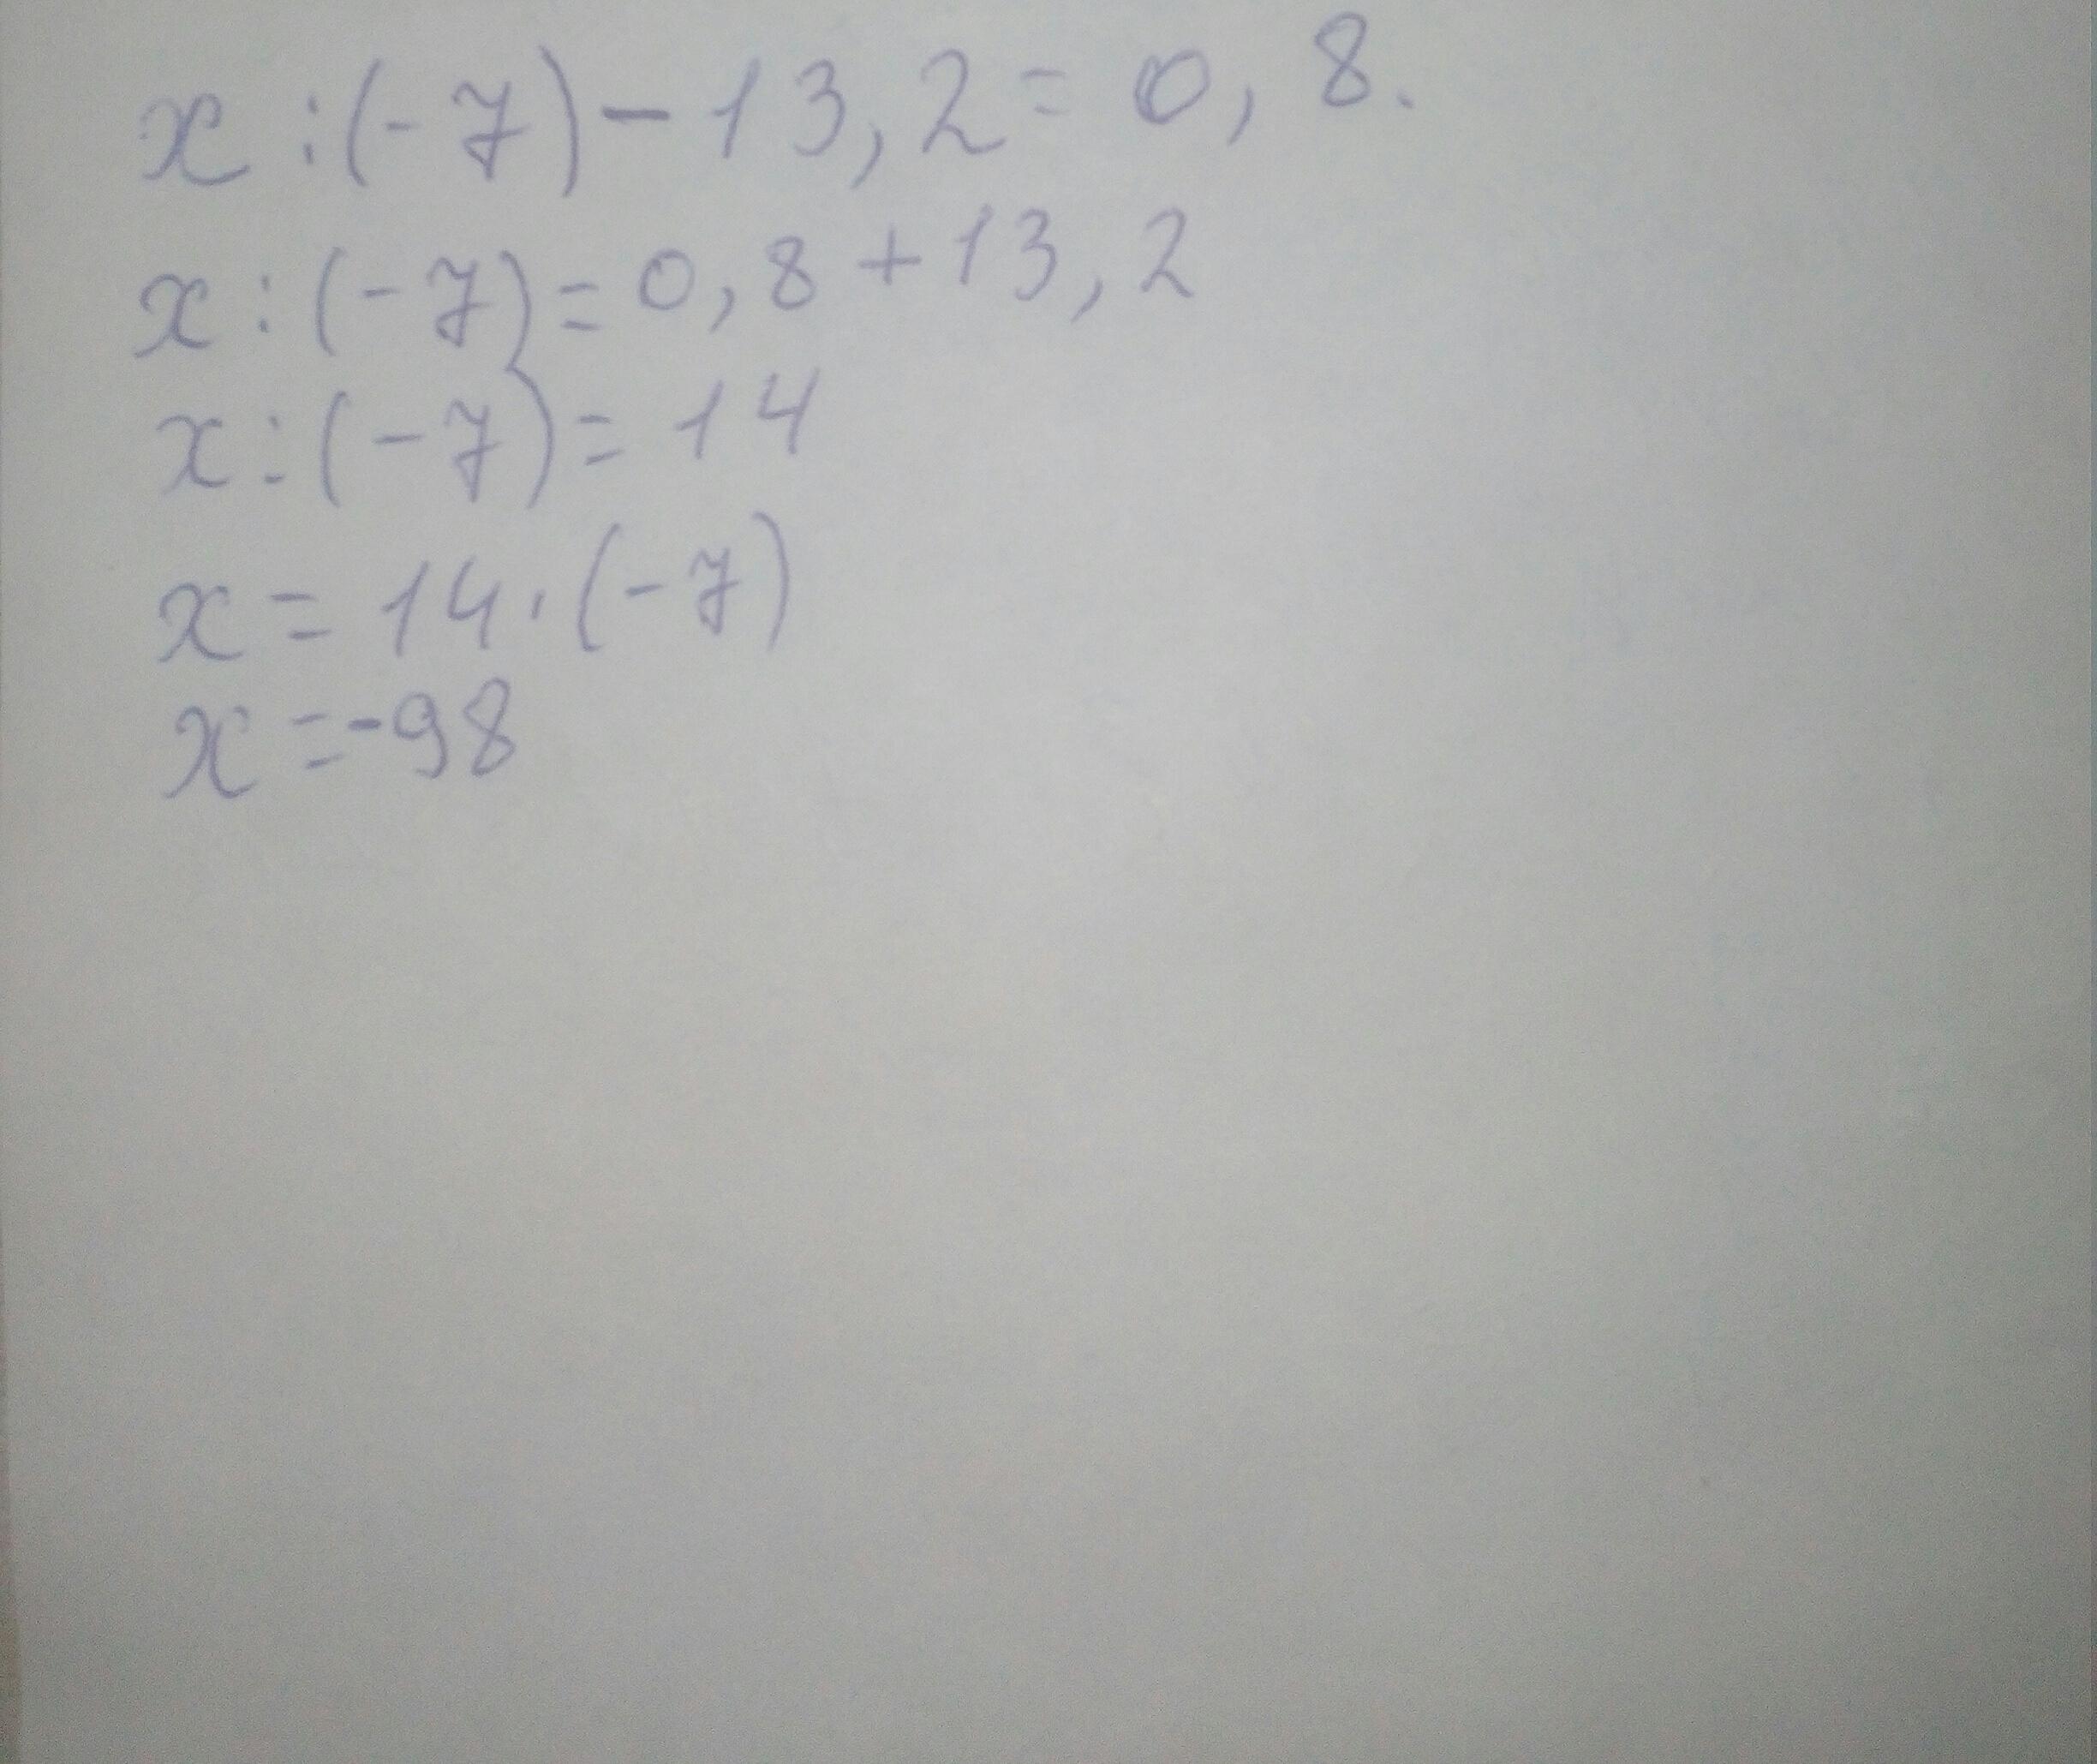 x : (-7) - 13,2 = 0,8.
x : (-7) = 0,8 + 13,2
x : (-7) = 14
x = 14 · (-7)
x = -98